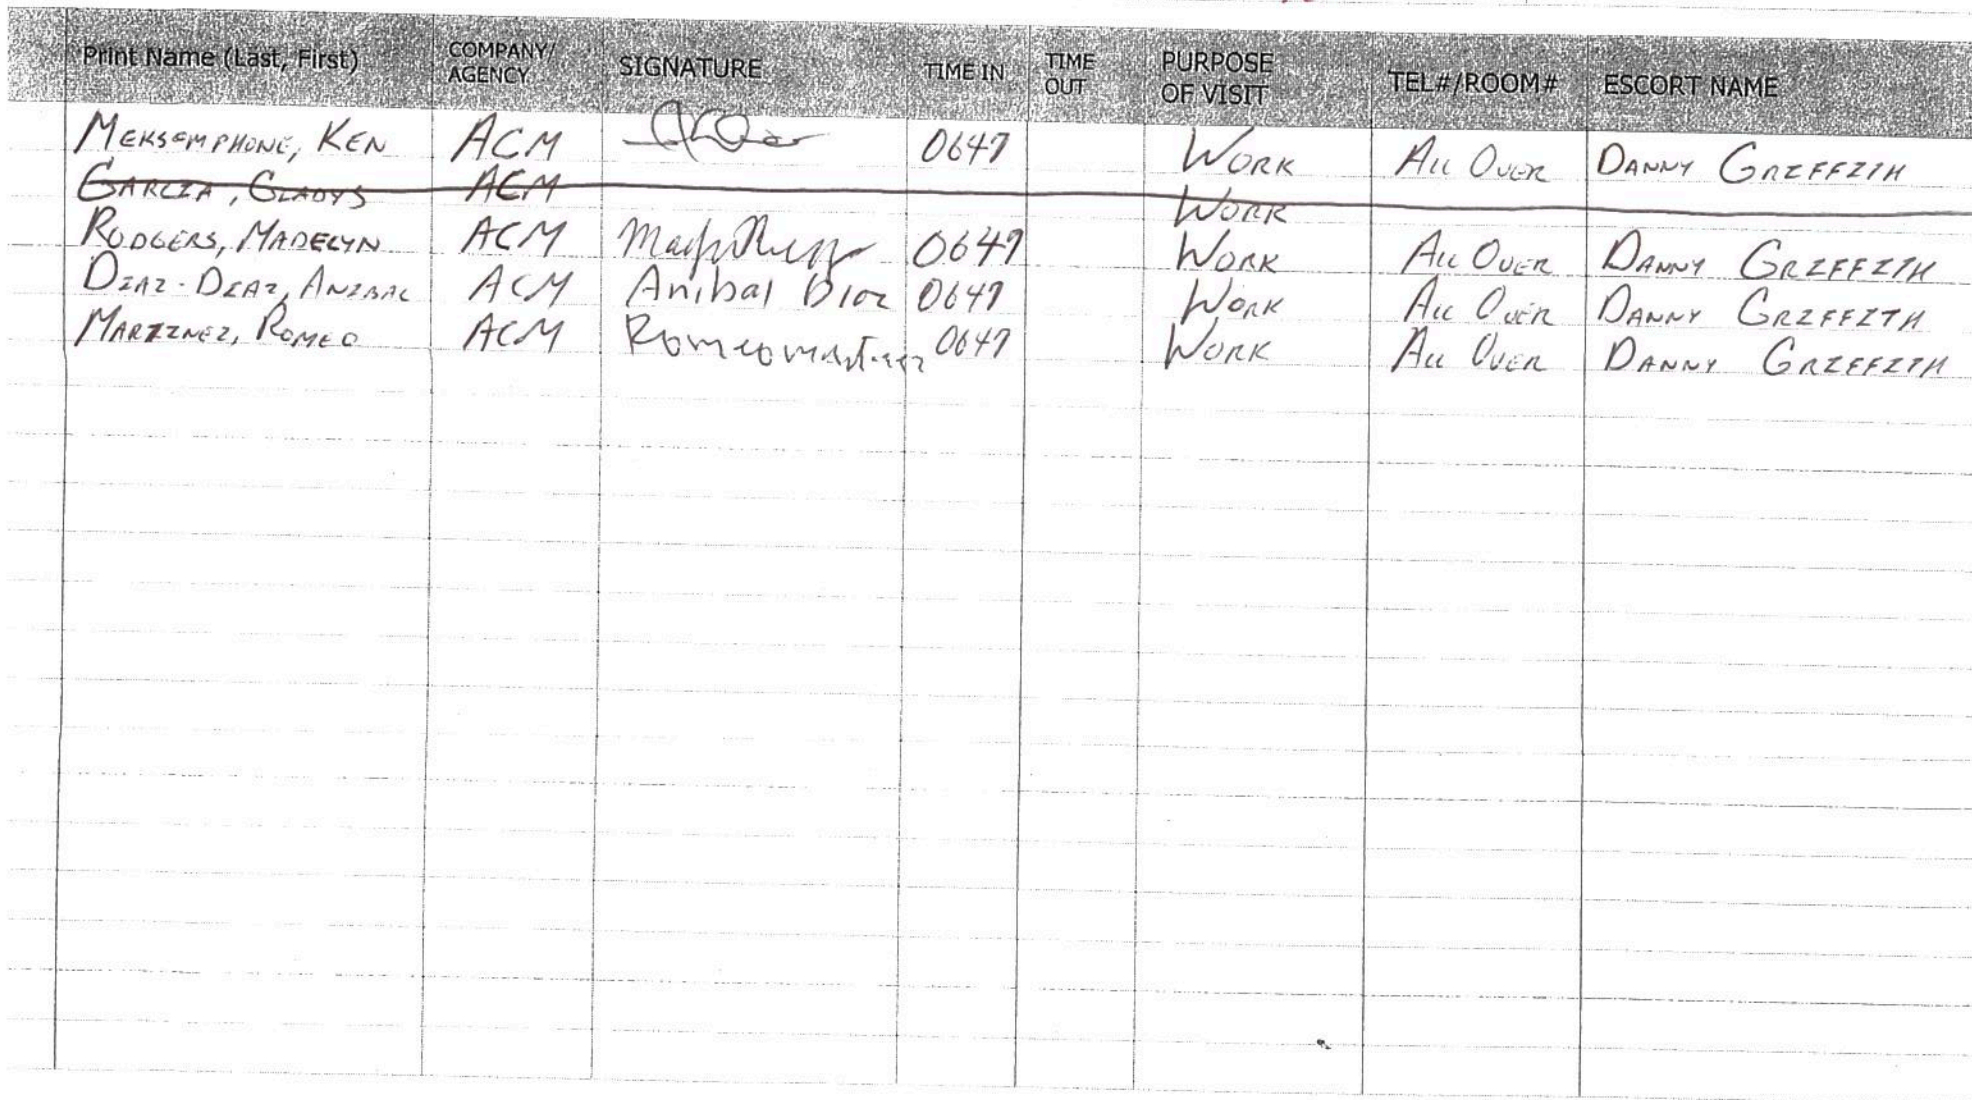 Print Name (Last, First) COMPANY/AGENCY SIGNATURE TIME IN TIME OUT PURPOSE OF VISIT TEL#/ROOM# ESCORT NAME
MEKSEMPHONE, KEN ACM 0647 WORK ALL OVER DANNY GRIFFITH
GARCIA, GLADYS ACM WORK
RODGERS, MADELYN ACM 0647 WORK ALL OVER DANNY GRIFFITH
DIAZ-DIAZ, ANIBAL ACM Anibal Diaz 0647 WORK ALL OVER DANNY GRIFFITH
MARTINEZ, ROMEO ACM Romeo Martinez 0647 WORK ALL OVER DANNY GRIFFITH